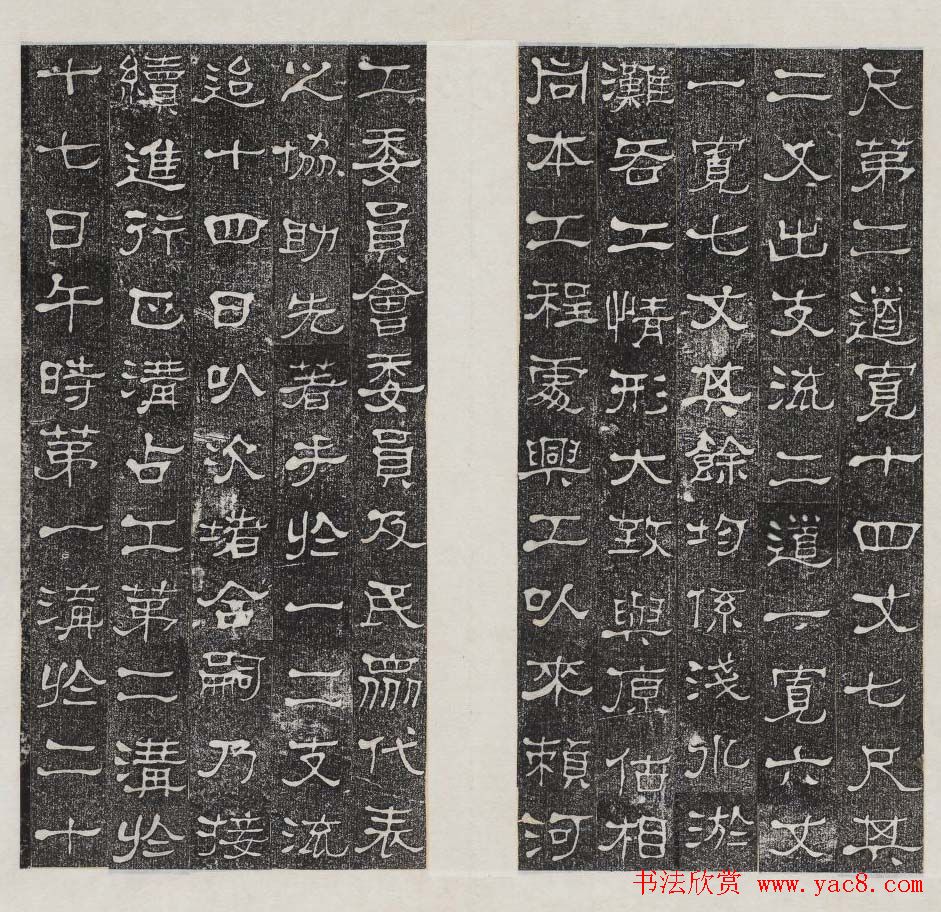 尺第二道寬十四丈七尺其
二又出支流二道一寬六丈
一寬七丈其餘均係淺水淤
灘各工情形大致與原估相
同本工程處興工以來賴河
工委員會委員及民眾代表
之協助先著手於一二支流
迨十四日以次堵合嗣乃接
續進行正溝占工第二溝於
十七日午時第一溝於二十
书法欣赏 www.yac8.com